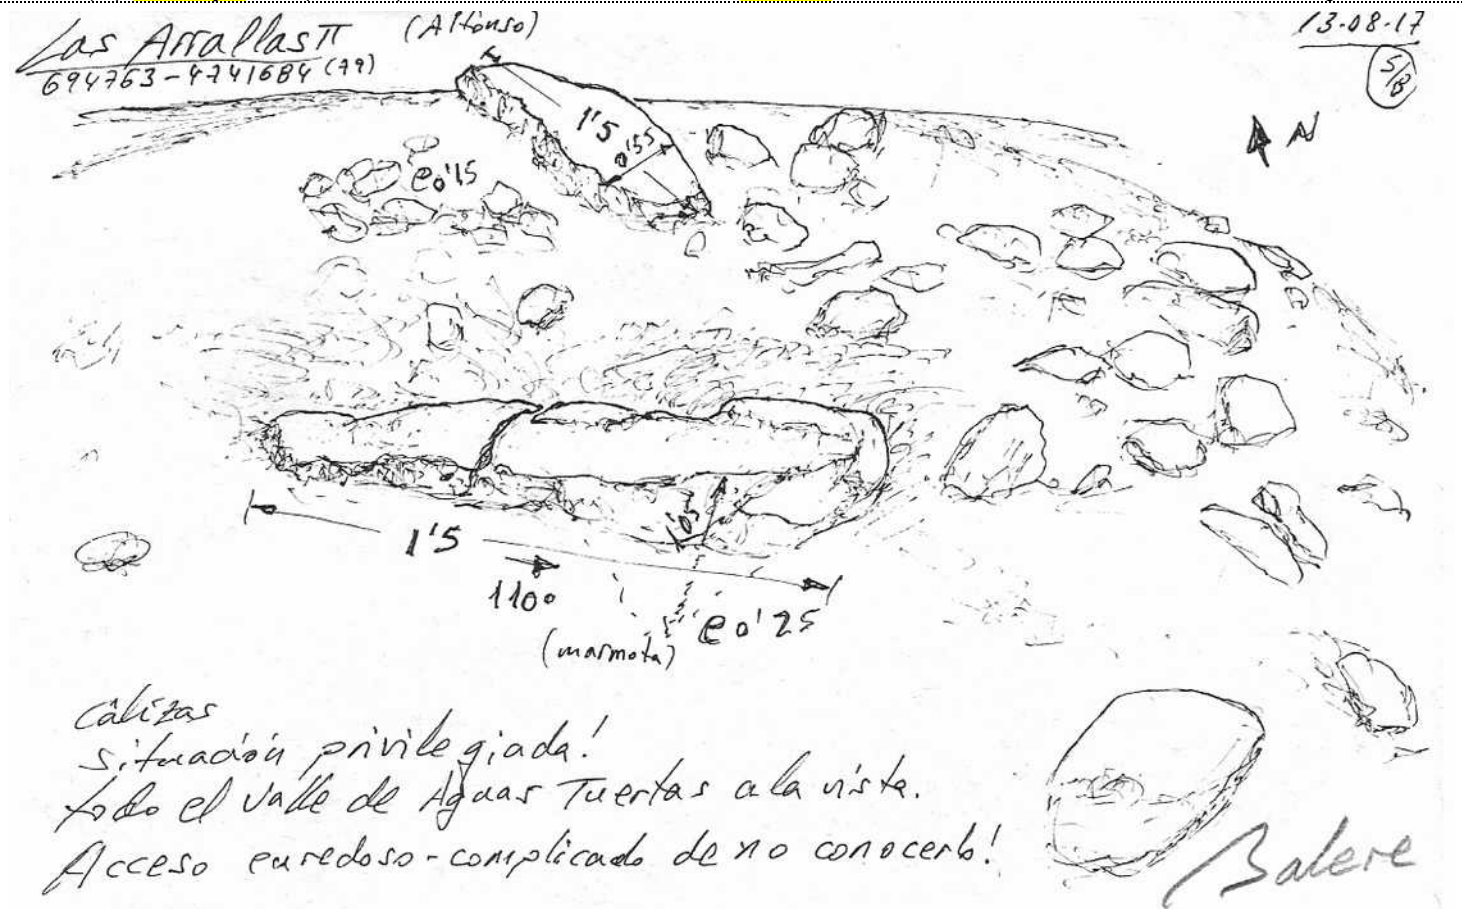 Las Arrallas II (Alfonso) 13-08-17
694763-4741684 (79)
S/B
N
1'5
0'55
e0'15
1'5
1'05
110°
e0'25
(marmota)
Cálizas
situación privilegiada!
todo el Valle de Aguas Tuertas a la vista.
Acceso enredoso-complicado de no conocerlo!
Balere